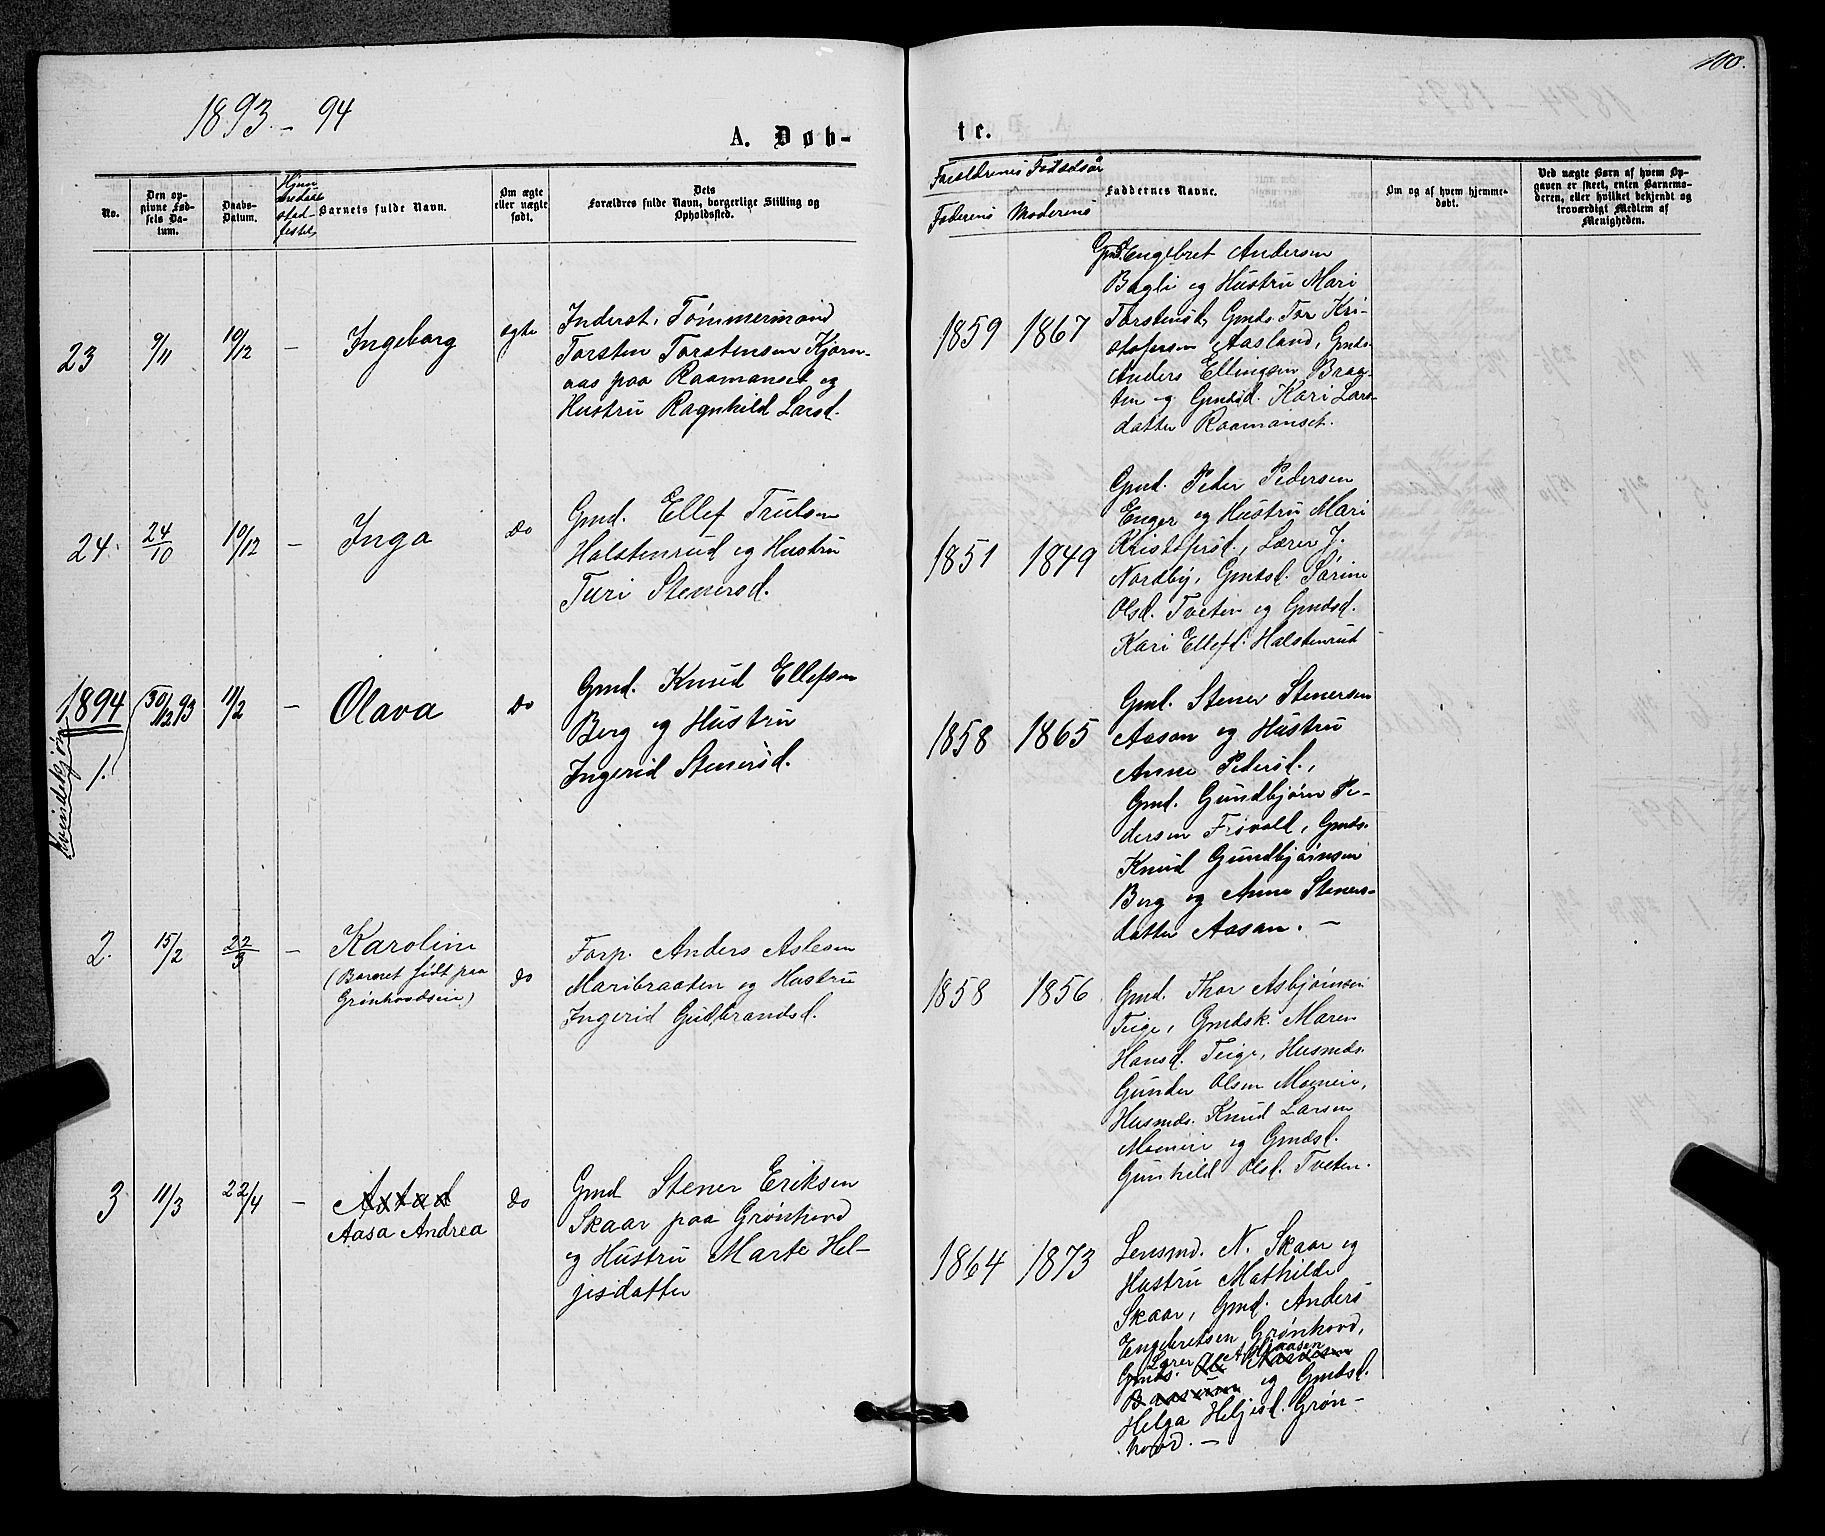 100.
1893. - 94
A. Døb-
te.
No.
Den op-
givne Fød-
sels Da-
tum.
Daabs-
Datum.
Barnets fulde Navn.
Om ægte
eller uægte
født.
Dets
Forældres fulde Navn, borgerlige Stilling og
Opholdssted.
Forældrenes Fødselsår
Faderens
Moderens
Faddernes Navne.
Om og af hvem hjemme-
døbt.
Ved uægte Børn af hvem Op-
gaven er skeet, enten Barnemo-
deren, eller hvilket bekjendt og
troværdigt Medlem af
Menigheden.
23
9/11
10/12
—
Ingeborg
ægte
Inderst, Tømmermand
Torsten Torstensen Kjørn-
aas paa Raamanset og
Hustru Ragnhild Larsd.
1859
1867
Gmd. Engebret Andersen
Bagli og Hustru Mari
Torstensd, Gmds. Tor Kri-
stofersen Aasland, Gmds.
Anders Ellingsen Braa-
ten og Gmdsd. Kari Lars-
datter Raamanset.
24.
24/10
10/12
—
Inga
do
Gmd. Ellef Trulsen
Halstenrud og Hustru
Turi Stenersd.
1851
1849
Gmd. Peder Pedersen
Enger og Hustru Mari
Kristofersd., Lærer J.
Nordby, Gmdsd. Sørine
Olsd. Tveten og Gmdsd.
Kari Ellefd. Halstenrud
1894
Kvindekjøn
1.
(30/12 93
11/2
—
Olava
do
Gmd. Knud Ellefsen
Berg og Hustru
Ingerid Stenersd.
1858
1865
Gmd. Stener Stenersen
Aasan og Hustru
Anne Pedersd.,
Gmd. Gundbjørn Pe-
dersen Frøvold, Gmds.
Knud Gundbjørnsen
Berg og Anne Steners-
datter Aasan. —
2.
15/2
22/3
—
Karoline
(Barnet født paa
Grønhovdseie)
do
Forp. Anders Aslesen
Maribraaten og Hustru
Ingerid Gudbrandsd.
1858
1856
Gmd. Thor Asbjørnsen
Teige, Gmdsk. Maren
Hansd. Teige, Husmds.
Gunder Olsen Moeneie,
Husmds. Knud Larsen
Moeneie og Gmdsd.
Gunhild Olsd. Tveten.
3
11/3
22/4
—
Astad
Aasa Andrea
do
Gmd Stener Eriksen
Skaar paa Grønhovd
og Hustru Marte Hel-
jesdatter
1864
1873
Lensmd. N. Skaar og
Hustru Mathilde
Skaar, Gmd. Anders
Engebretsen Grønhovd,
Lærer A.
Gmds.
og Gmdsd.
Helga Heljesd. Grøn-
hovd. —